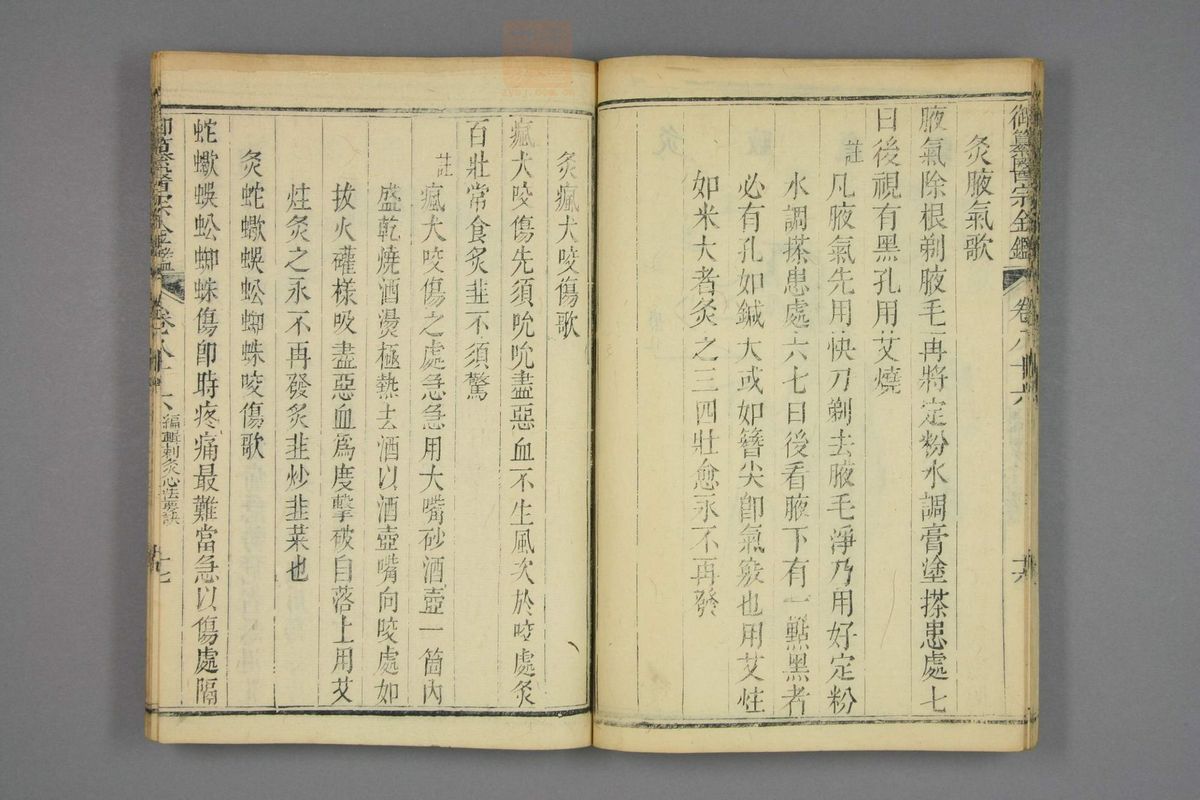 御纂醫宗金鑑 卷八十六 十六
灸腋氣歌
腋氣除根剃腋毛再將定粉水調膏塗搽患處七
日後視有黑孔用艾燒
註 凡腋氣先用快刀剃去腋毛淨乃用好定粉
水調搽患處六七日後看腋下有一點黑者
必有孔如鍼大或如簪尖卽氣竅也用艾炷
如米大者灸之三四壯愈永不再發
灸瘋犬咬傷歌
瘋犬咬傷先須吮吮盡惡血不生風次於咬處灸
百壯常食炙韭不須驚
註 瘋犬咬傷之處急急用大嘴砂酒壺一箇內
盛乾燒酒燙極熱去酒以酒壺嘴向咬處如
拔火礶樣吸盡惡血爲度擊破自落上用艾
炷灸之永不再發炙韭炒韭菜也
灸蛇蠍蜈蚣蜘蛛咬傷歌
蛇蠍蜈蚣蜘蛛傷卽時疼痛最難當急以傷處隔
御纂醫宗金鑑 卷八十六 編輯刺灸心法要訣 十七